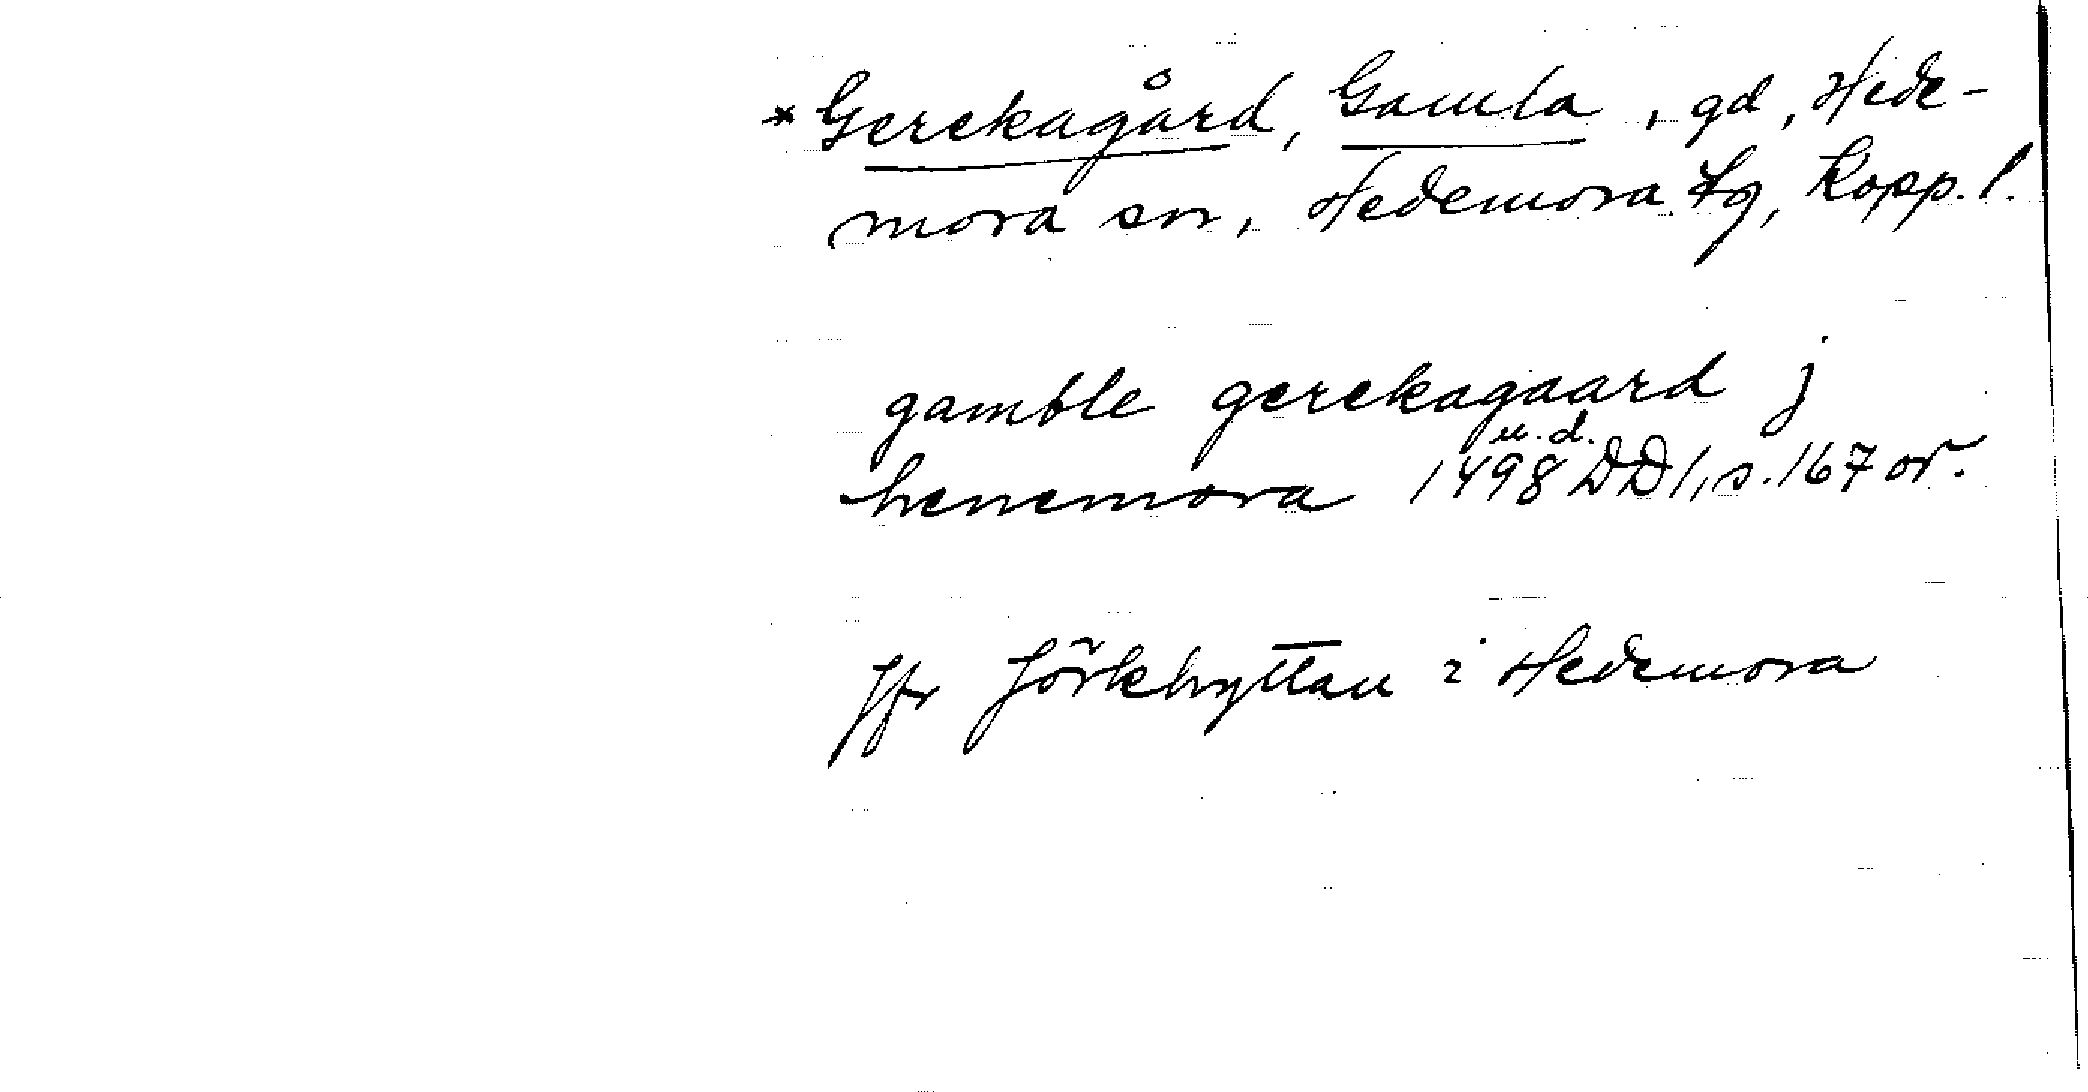 * Gerekagård, Gamla, gd, Hede-
mora sn, Hedemora tg, Kopp. l.
gamble gerekagaard j
u. d.
henemora 1498 DD 1, s. 167 or.
Jfr Jörkhyttan i Hedemora